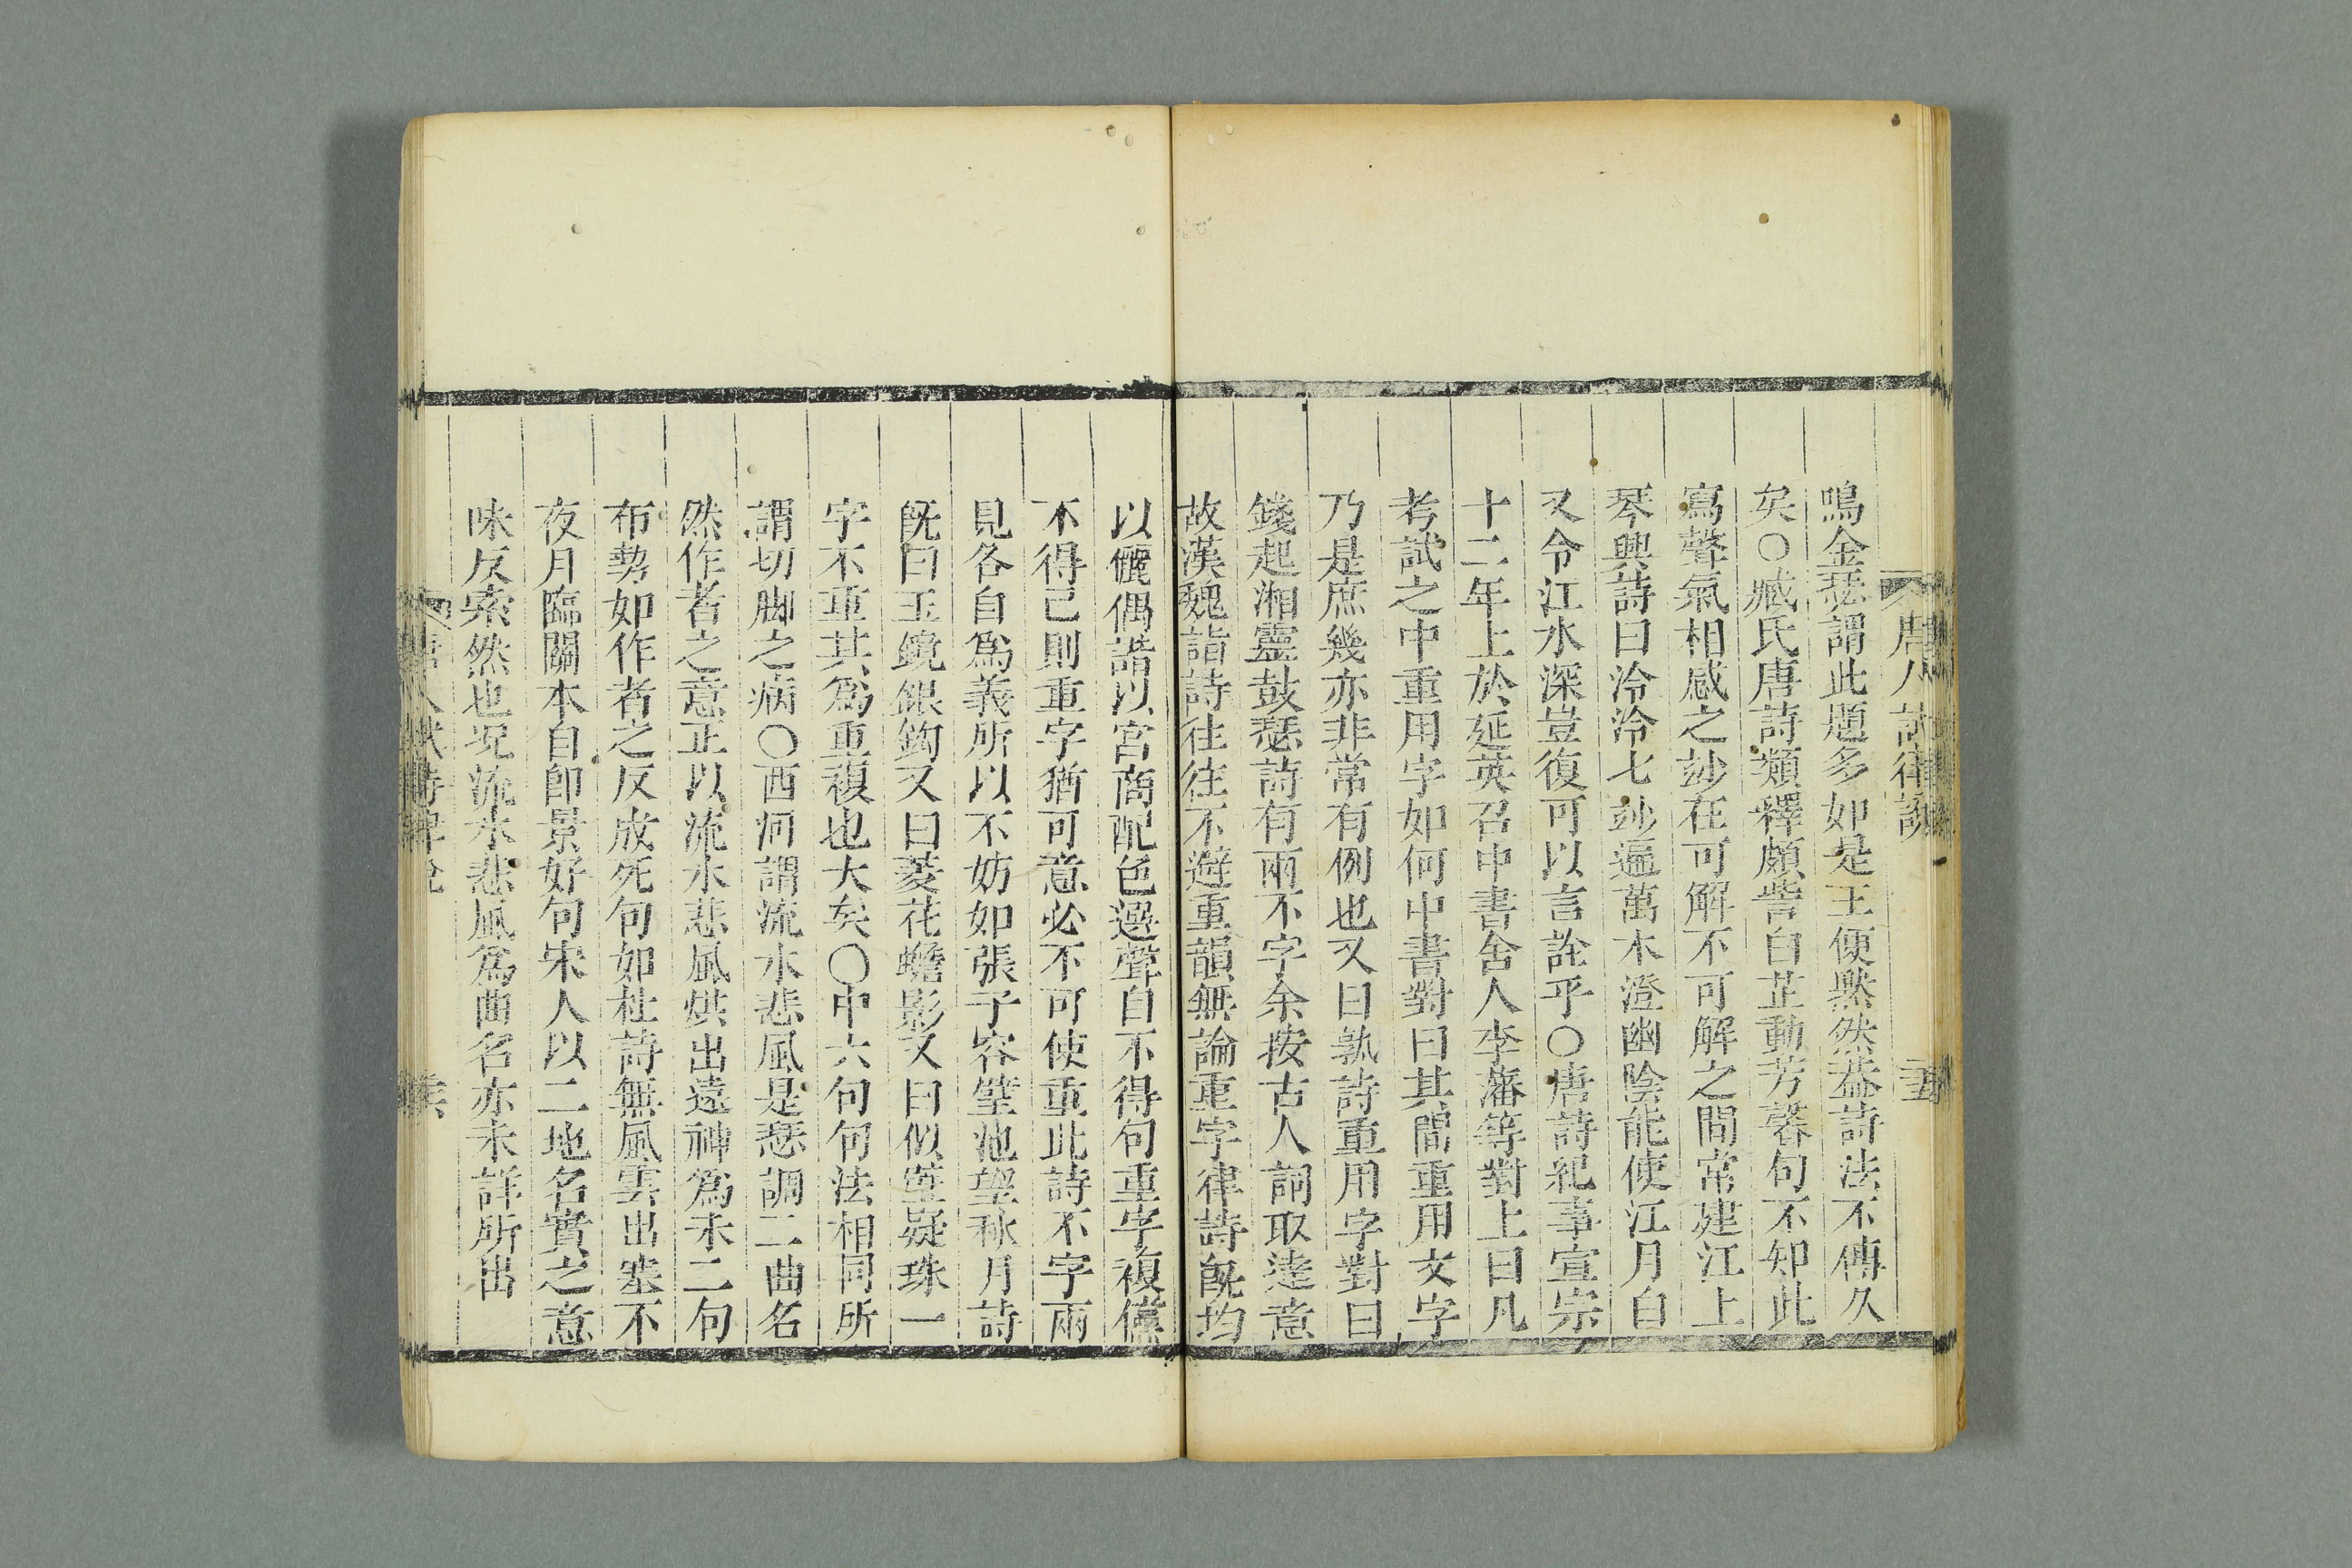 唐人試律說
二五
鳴金瑟謂此題多如是王便黙然葢詩法不傳久
矣○臧氏唐詩類釋頗訾白芷動芳馨句不知此
寫聲氣相感之妙在可解不可解之間常建江上
琴興詩曰泠泠七妙遍萬木澄幽陰能使江月白
又令江水深豈復可以言詮乎○唐詩紀事宣宗
十二年上於延英召中書舍人李藩等對上曰凡
考試之中重用字如何中書對曰其間重用文字
乃是庶幾亦非常有例也又曰孰詩重用字對曰
錢起湘靈鼓瑟詩有兩不字余按古人詞取達意
故漢魏詣詩往往不避重韻無論重字律詩旣均
以儷偶諧以宮商配色選聲自不得句重字複儻
不得已則重字猶可意必不可使重此詩不字兩
見各自爲義所以不妨如張子容璧池望秋月詩
旣曰玉鏡銀鉤又曰菱花蟾影又曰似璧疑珠一
字不重其爲重複也大矣○中六句句法相同所
謂切脚之病○西河謂流水悲風是瑟調二曲名
然作者之意正以流水悲風烘出遠神爲末二句
布勢如作者之反成死句如杜詩無風雲出塞不
夜月臨關本自卽景好句宋人以二地名實之意
味反索然也况流水悲風爲曲名亦未詳所出